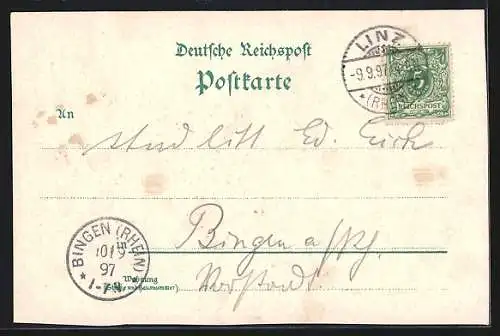 Deutsche Reichspost
Postkarte
LINZ
-9.9.97
* (RHEIN)
5
REICHSPOST
An
stud litt Ed.
Bingen a/Rh.
Vorstadt
BINGEN (RHEIN)
10/9
97
* 1-
Wohnung
(Straße und Hausnummer)